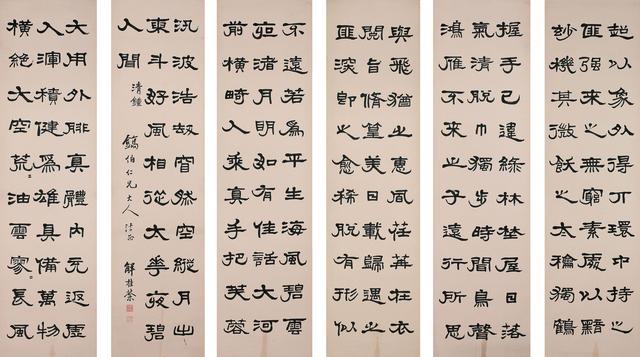 超以象外得丌環中持之
匪強來之無窮素處以默
妙機其微飲之太龢獨鶴
握手已違綠林埜屋日落
氣清脫巾獨步時聞鳥聲
鴻雁不來之子遠行所思
與飛猶之惠風荏苒在衣
閱音脩篁美曰載歸遇之
匪深即之愈稀脫有形似
不遠若為平生海風碧雲
夜渚月明如有佳話大河
前橫畸人乘真手把芙蓉
汎彼浩劫窅然空縱月出
東斗好風相從太華夜碧
人聞清鍾
伯仁兄大人法正
大用外腓真體內充返虛
入渾積健為雄具備萬物
橫絕太空荒〻油雲寥〻長風